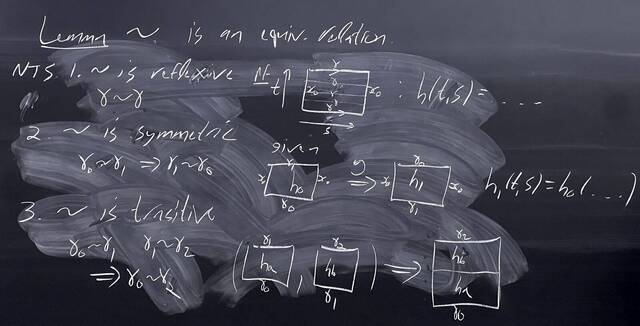 Lemma ~ is an equiv. relation.
NTS 1. ~ is reflexive Pf. t↑ γ x₀ x₀ γ s : h(t,s) = ....
γ~γ
2. ~ is symmetric given
γ₀~γ₁ ⇒ γ₁~γ₀ γ₁ x₀ h₀ x₀ γ₀ ⇒ γ₀ x₀ h₁ x₀ γ₁ h₁(t,s) = h₀(....)
3. ~ is transitive
γ₀~γ₁ γ₁~γ₂ ( γ₁ ha γ₀ , γ₂ hb γ₁ ) ⇒ γ₂ hb ha γ₀
⇒ γ₀~γ₂